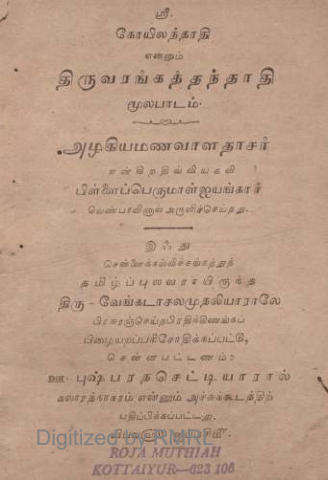 ஸ்ரீ.
கோயிலந்தாதி
என்னும்
திருவரங்கத்தந்தாதி
மூலபாடம்.
அழகியமணவாளதாசர்
என்கிறதிவ்வியகவி
பிள்ளைப்பெருமாள்ஐயங்கார்
வெண்பாவினால் அருளிச்செய்தது.
இஃது
சென்னைக்கல்விச்சங்கத்துத்
தமிழ்ப்புலவராயிருந்த
திரு - வேங்கடாசலமுதலியாராலே
பிரசுரஞ்செய்தபிரதிக்கிணங்கப்
பிழையறப்பரிசோதிக்கப்பட்டு,
சென்னபட்டணம்:
ஊ. புஷ்பரதசெட்டியாரால்
கலாரத்நாகரம் என்னும் அச்சுக்கூடத்திற்
பதிப்பிக்கப்பட்டது.
Digitized by RMRL
ROJA MUTHIAH
KOTTAIYUR—623 106